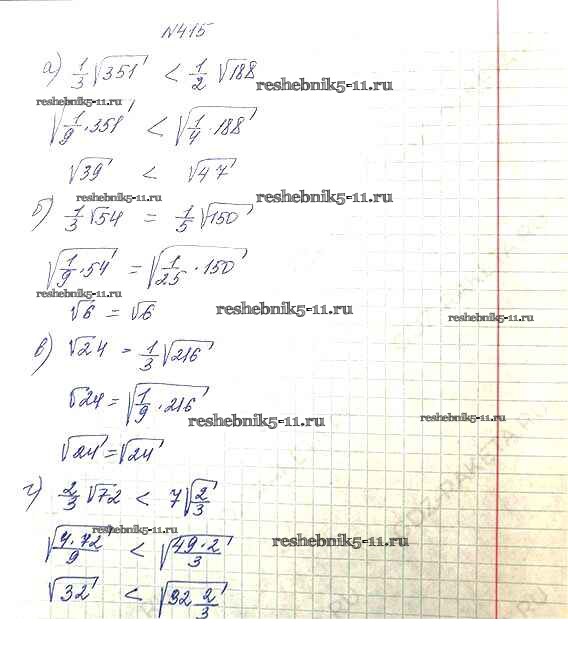 N415
а) 1/3 √351 < 1/2 √188
reshebnik5-11.ru
reshebnik5-11.ru
√(1/9 · 351) < √(1/4 · 188)
√39 < √47
reshebnik5-11.ru
reshebnik5-11.ru
б) 1/3 √54 = 1/5 √150
√(1/9 · 54) = √(1/25 · 150)
reshebnik5-11.ru
√6 = √6
reshebnik5-11.ru
reshebnik5-11.ru
в) √24 = 1/3 √216
√24 = √(1/9 · 216)
reshebnik5-11.ru
reshebnik5-11.ru
√24 = √24
г) 2/3 √72 < 7 √(2/3)
reshebnik5-11.ru
√(4·72/9) < √(49·2/3)
reshebnik5-11.ru
√32 < √(32 2/3)